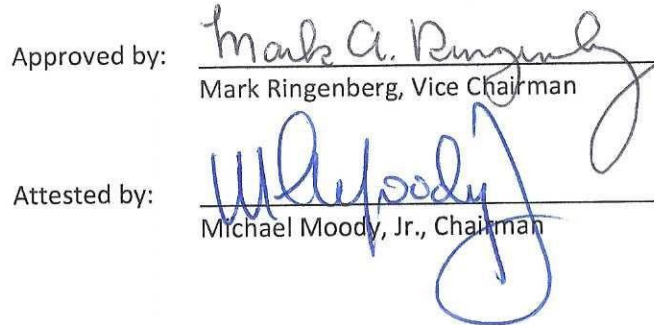 Approved by: Mark A. Ringenberg
Mark Ringenberg, Vice Chairman
Attested by: M Moody Jr
Michael Moody, Jr., Chairman